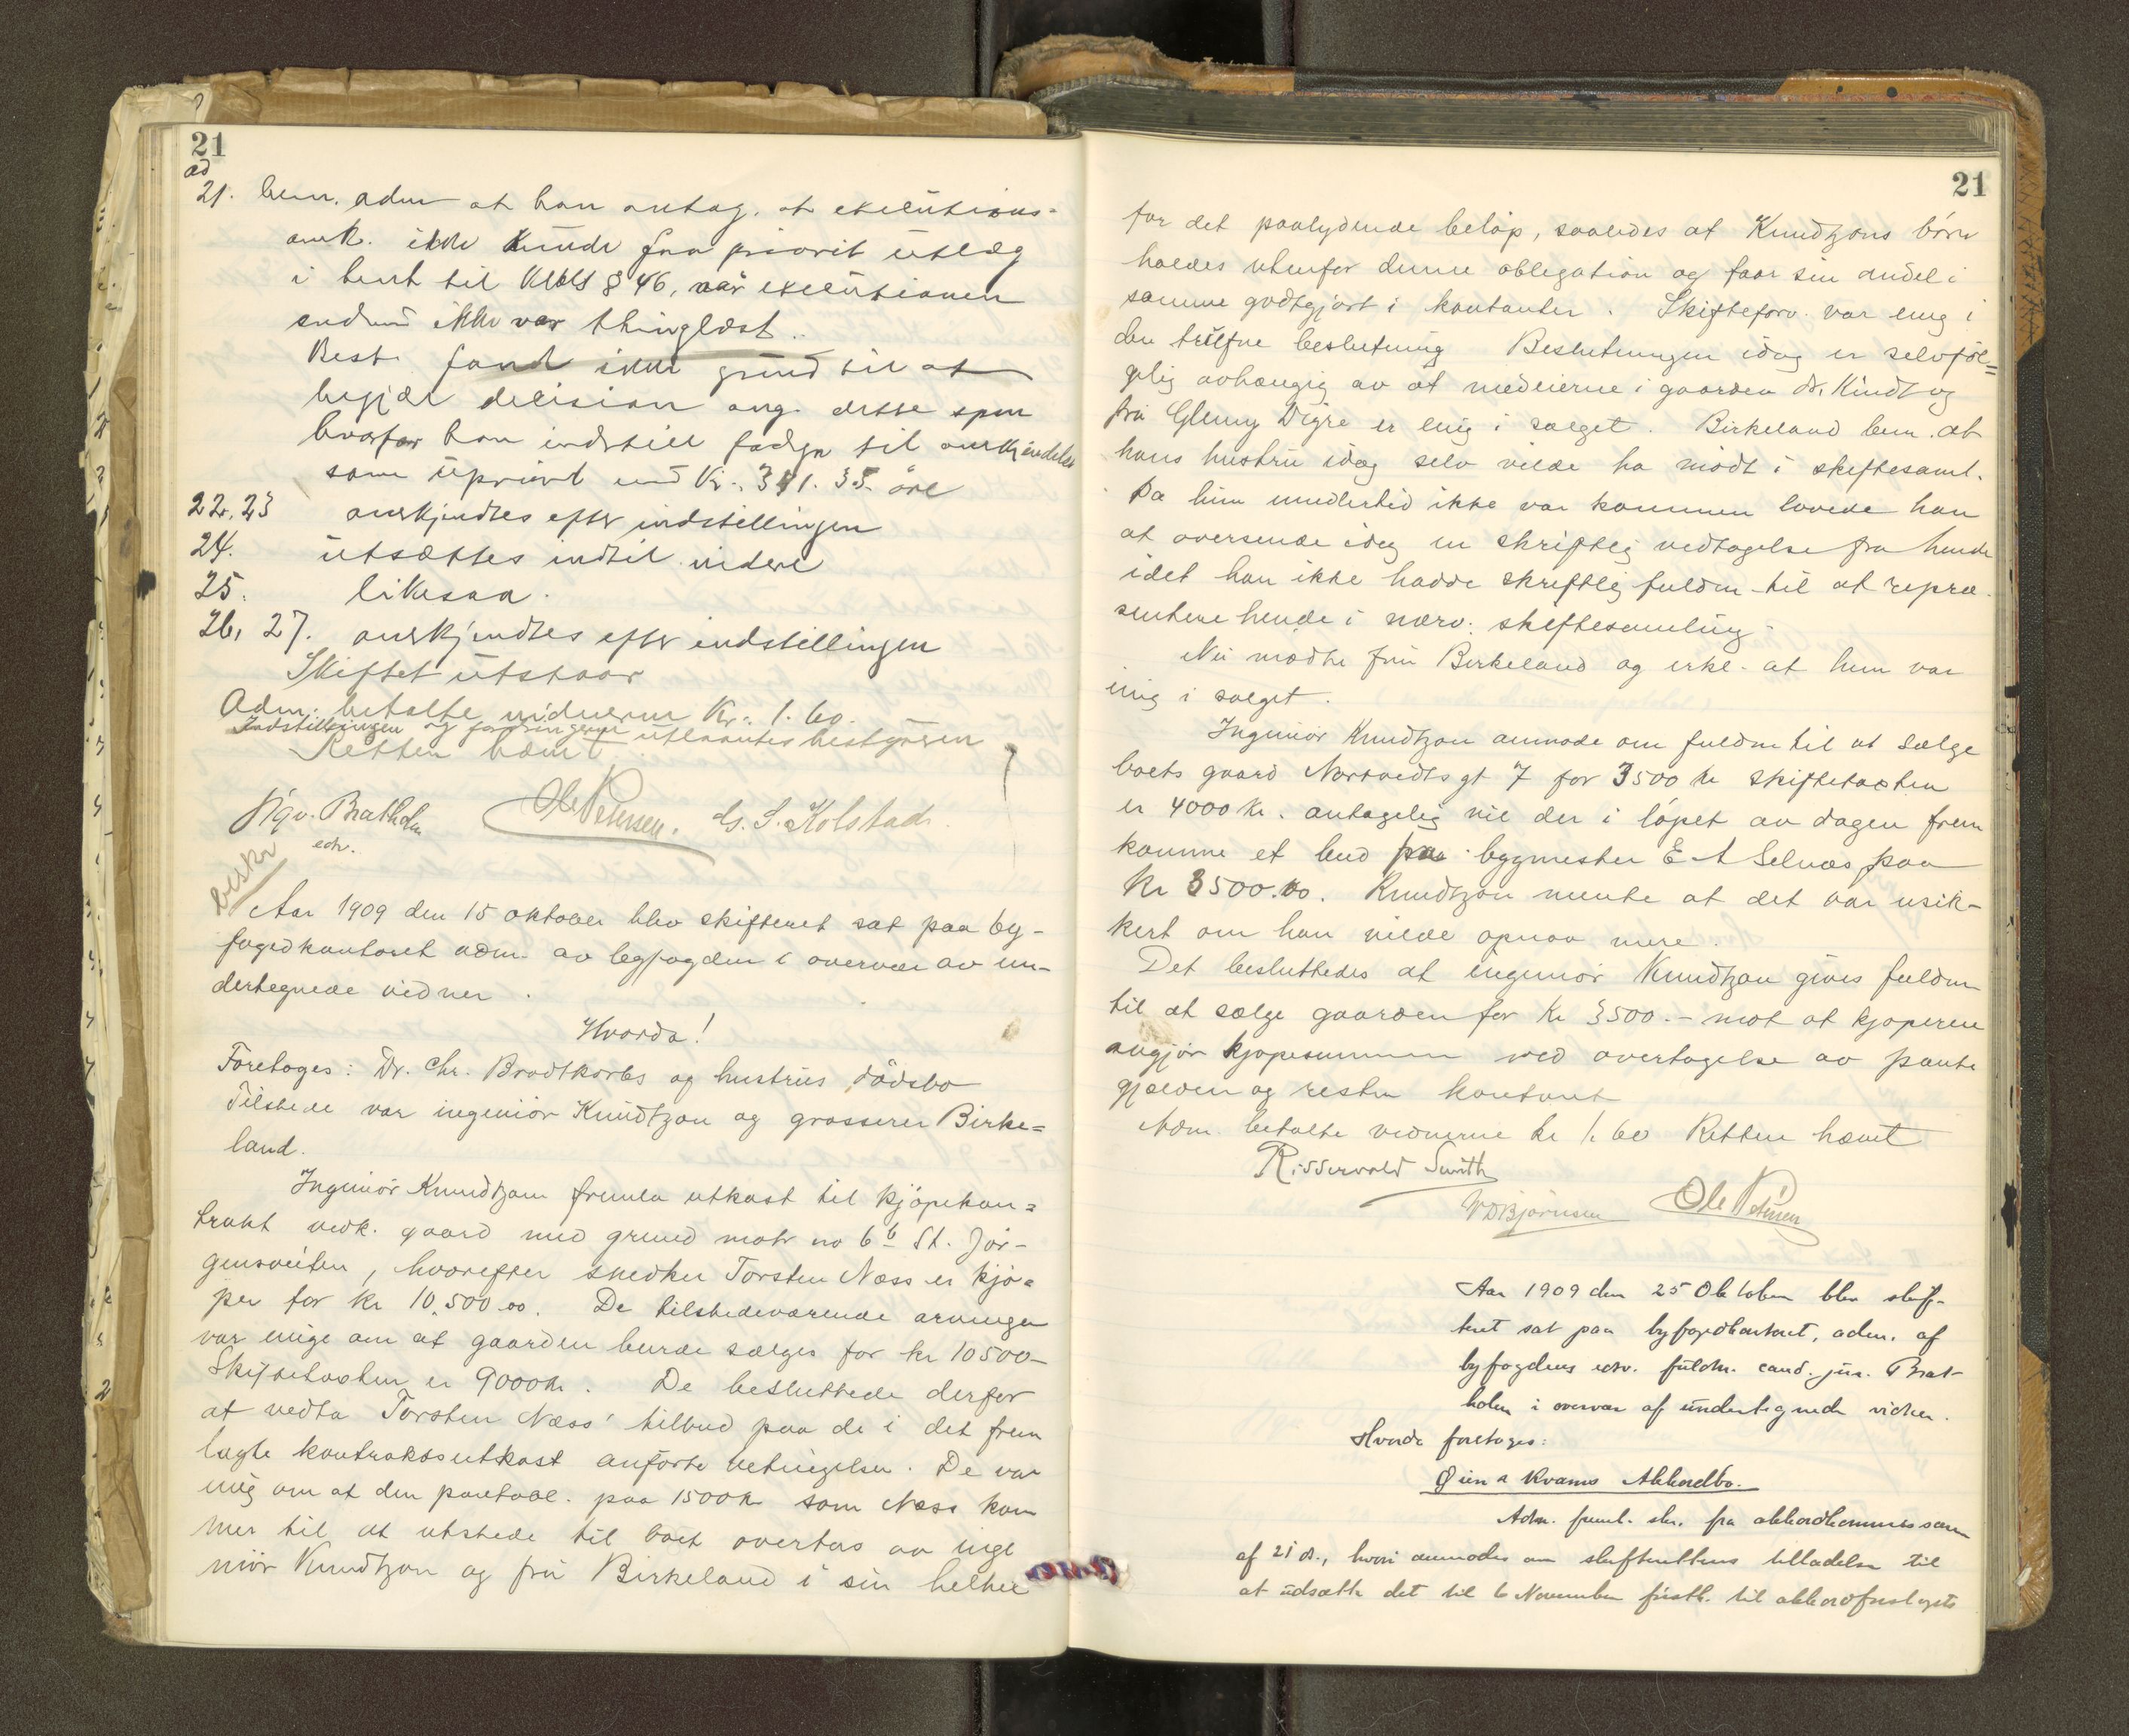 21
ad
21. bem. adm at han antag. at executions-
anrk. ikke kunde faa priorit utlæg
i henh til Klols § 46, når executionen
endnu ikke var thinglæst.
Best. fand ikke grund til at
begjær decision ang. dette spm
hvorfor han indstill fodrgn til anerkjendelse
som upriort med Kr. 311.35 öre
22, 23 anerkjendtes efter indstillingen
24. utsættes indtil videre
25. likesaa.
26, 27. anerkjendtes efter indstillingen
Skiftet utstaar
Adm. betalte vidnerne Kr. 1.60.
Indstillingen og fordringerne utlaantes bestyreren
Retten hævet
Sigv. Bratholm Ole Petersen. G. S. Kolstad.
edv.
beskr
Aar 1909 den 15 oktober blev skifteret sat paa by-
fogedkontoret adm. av byfogden i overvær av un-
dertegnede vidner.
Hvorda!
Foretoges: Dr. Chr. Brodtkorbs og hustrus dödsbo
Tilstede var ingeniör Knudtzon og grosserer Birke=
land.
Ingeniör Knudtzon fremla utkast til kjöpekon=
trakt vedk. gaard med grund matr no 6b St. Jör-
gensveiten, hvorefter snedker Torsten Næss er kjö=
per for kr 10.500.00. De tilstedeværende arvinger
var enige om at gaarden burde sælges for kr 10500-
Skiftetaxten er 9000 kr. De besluttede derfor
at vedta Torsten Næss' tilbud paa de i det frem
lagte kontraktsutkast anförte betingelser. De var
enig om at den panteobl. paa 1500 kr som Næss kom
mer til at utstede til boet overtas av inge
niör Knudtzon og fru Birkeland i sin helhet
21
for det paalydende belöp, saaledes at Knudtzons börn
holdes utenfor denne obligation og faar sin andel i
samme godtgjort i kontanter. Skifteforv. var enig i
den trufne beslutning Beslutningen idag er selvföl=
gelig avhængig av at medeierne i gaarden dr. Kindt og
fru Glenny Digre er enig i salget. Birkeland bem. at
hans hustru idag selv vilde ha mödt i skiftesaml.
Da hun imidlertid ikke var kommen lovede han
at oversende idag en skriftlig vedtagelse fra hende
idet han ikke hadde skriftlig fuldm til at repræ-
sentere hende i nærv. skiftesamling.
Nu mödte fru Birkeland og erkl. at hun var
enig i salget.
Ingeniör Knudtzon anmode om fuldm til at sælge
boets gaard Nortvedts gt 7 for 3500 kr skiftetaxten
er 4000 kr. antagelig vil der i löpet av dagen frem
komme et bud fra bygmester E A Selnæs paa
kr 3500.00. Knudtzon mente at det var usik-
kert om han vilde opnaa mere.
Det besluttedes at ingeniör Knudtzon gives fuldm
til at sælge gaarden for kr 3500.- mot at kjöperen
avgjör kjöpesummen ved overtagelse av pante
gjælden og resten kontant
Adm. betalte vidnerne kr 1.60 Retten hævet
Risservold Smith
W D Björnsen Ole Petersen
Aar 1909 den 25 Oktober blev skif-
teret sat paa byfogedkontoret, adm. af
byfogdens edv. fuldm. cand. jur. Brat-
holm i overvær af undertegnede vidner.
Hvorda foretoges:
Øien & Kvams Akkordbo.
Adm. freml. skr. fra akkordkommissæren
af 21 ds., hvori anmodes om skifterettens tilladelse til
at udsætte det til 6 November fristb. til akkordforslagets